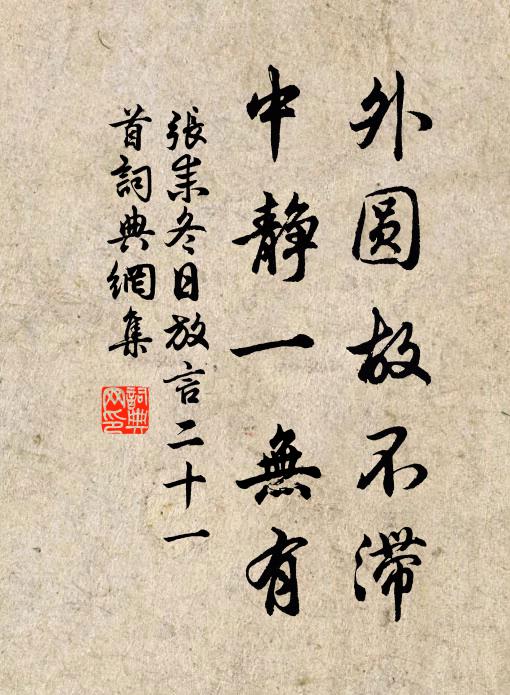 外圆故不滞
中静一無有
張耒冬日放言二十一
首詞典網集
詞典网印